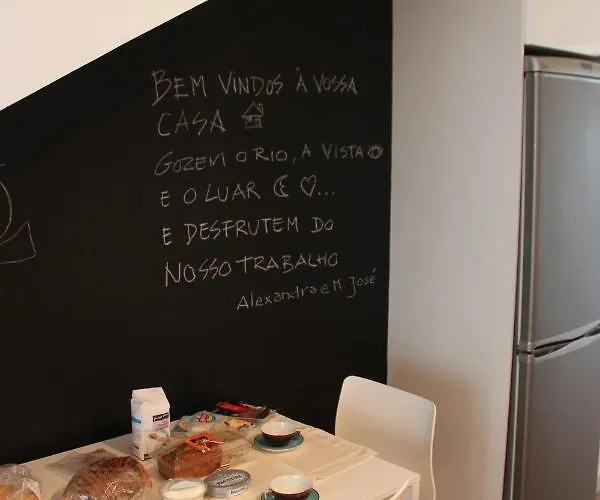 BEM VINDOS À VOSSA
CASA
GOZEM O RIO, A VISTA
E O LUAR ...
E DESFRUTEM DO
NOSSO TRABALHO
Alexandra e M. José